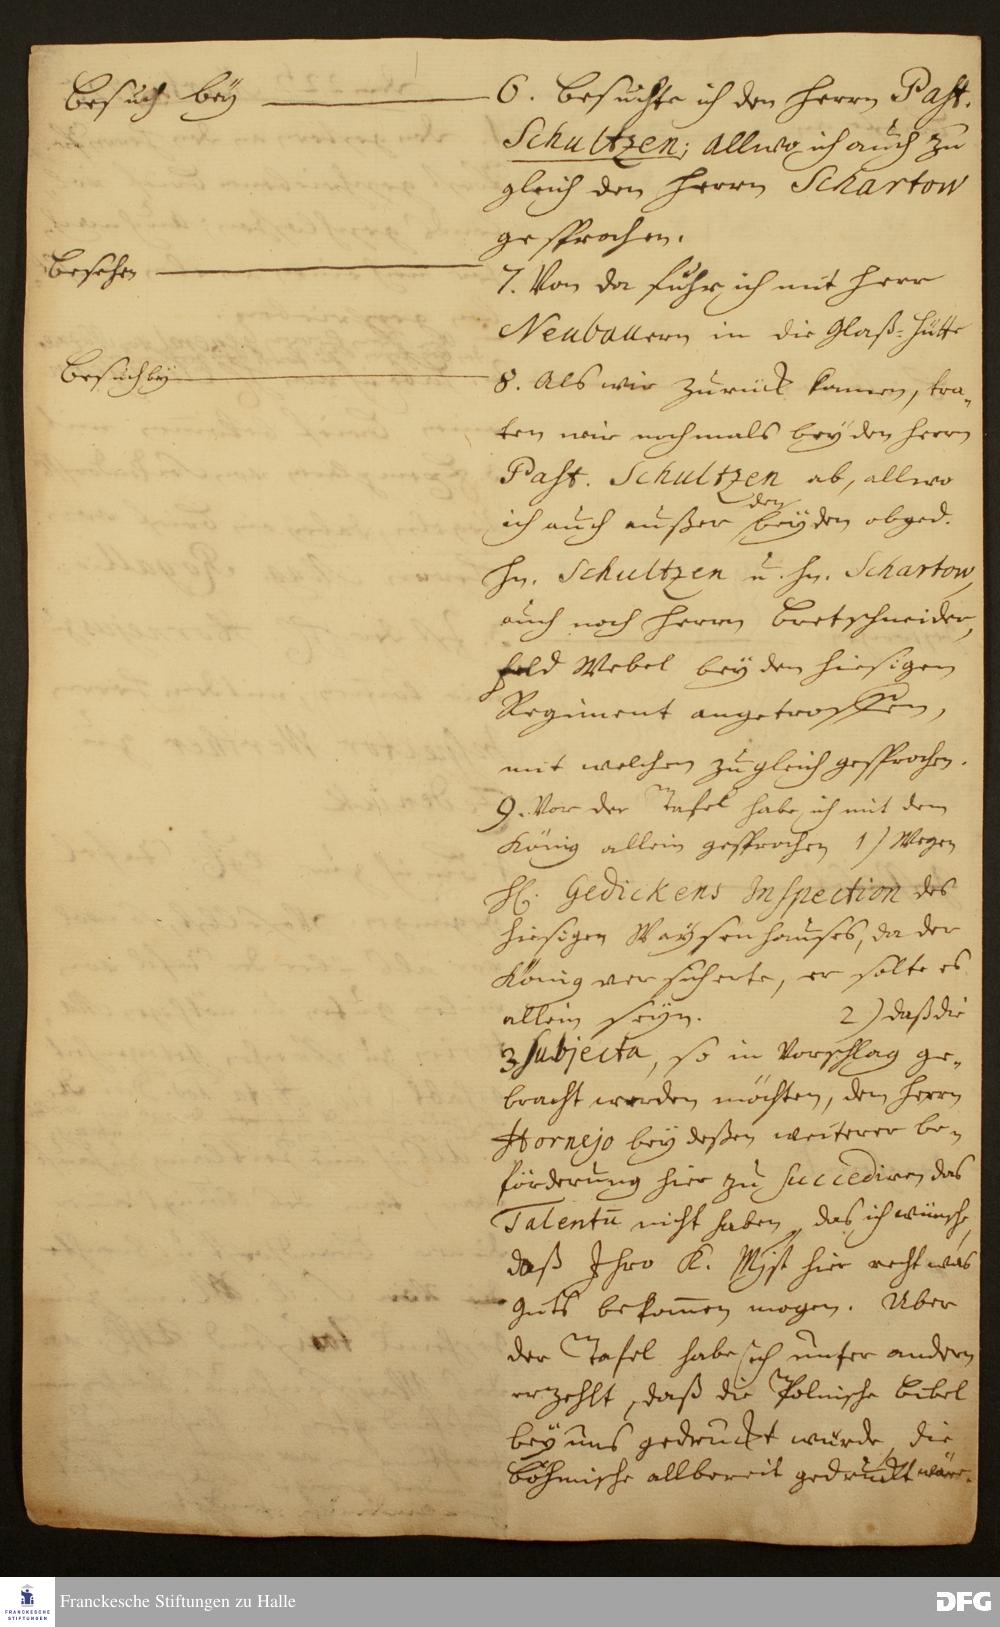 Besuch bey
6. Besuchte ich den Herrn Past.
Schultzen; allwo ich auch zu
gleich den Herrn Schartow
gesprochen.
Besehen
7. Von da fuhr ich mit Herr
Neubauern in die Glaß-Hütte
Besuch bey
8. Als wir zurück kamen, tra-
ten wir nochmals bey den Herrn
Past. Schultzen ab, allwo
ich auch außer den beyden obged.
Hn. Schultzen u. Hn. Schartow,
auch noch Herrn Bretschneider,
feld Webel bey den hiesigen
Regiment angetroffen,
mit welchen zugleich gesprochen.
9. Vor der Tafel habe ich mit dem
König allein gesprochen 1) Wegen
H. Gedickens Inspection des
hiesigen Waysenhauses, da der
König versicherte, er solte es
allein seyn. 2) daß die
3 Subjecta, so in Vorschlag ge-
bracht werden möchten, dem Herrn
Hornejo bey deßen weiterer be-
förderung hier zu succediren das
Talentū nicht haben, das ich wünsche,
daß Ihro K. Mjst hier recht was
guts bekom̅en mogen. Uber
der Tafel habe ich unter andern
erzehlt, daß die Polnische Bibel
bey uns gedruckt würde, die
Böhmische allbereit gedruckt wäre.
Franckesche Stiftungen zu Halle
FRANCKESCHE
STIFTUNGEN
DFG